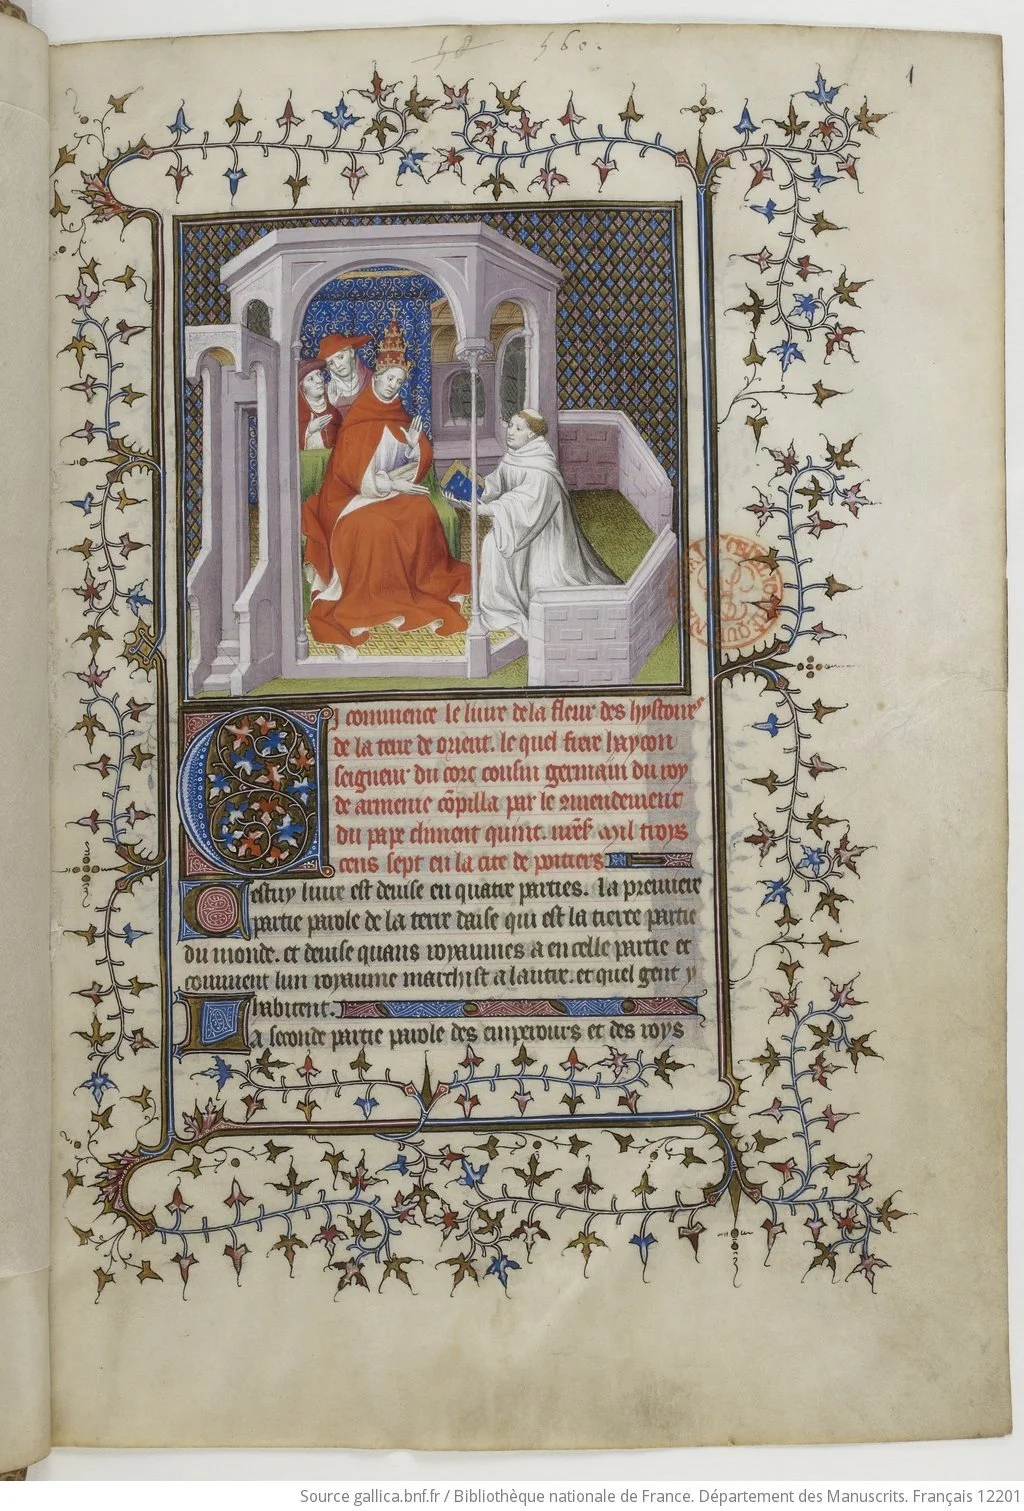 58 560.
1
Ci commence le livre de la fleur des hystoires
de la terre de orient. le quel frere haycon
seigneur du corc cousin germain du roy
de armenie cōpilla par le cmendement
du pape climent quint. mil troys
cens sept en la cite de poitiers
Cestuy livre est devise en quatre parties. La premiere
partie parole de la terre daise qui est la tierce partie
du monde. et devise quans royaumes a en celle partie et
comment lun royaume marchist a lautre. et quel gent y
habitent.
La seconde partie parole des emperours et des roys
Source gallica.bnf.fr / Bibliothèque nationale de France. Département des Manuscrits. Français 12201